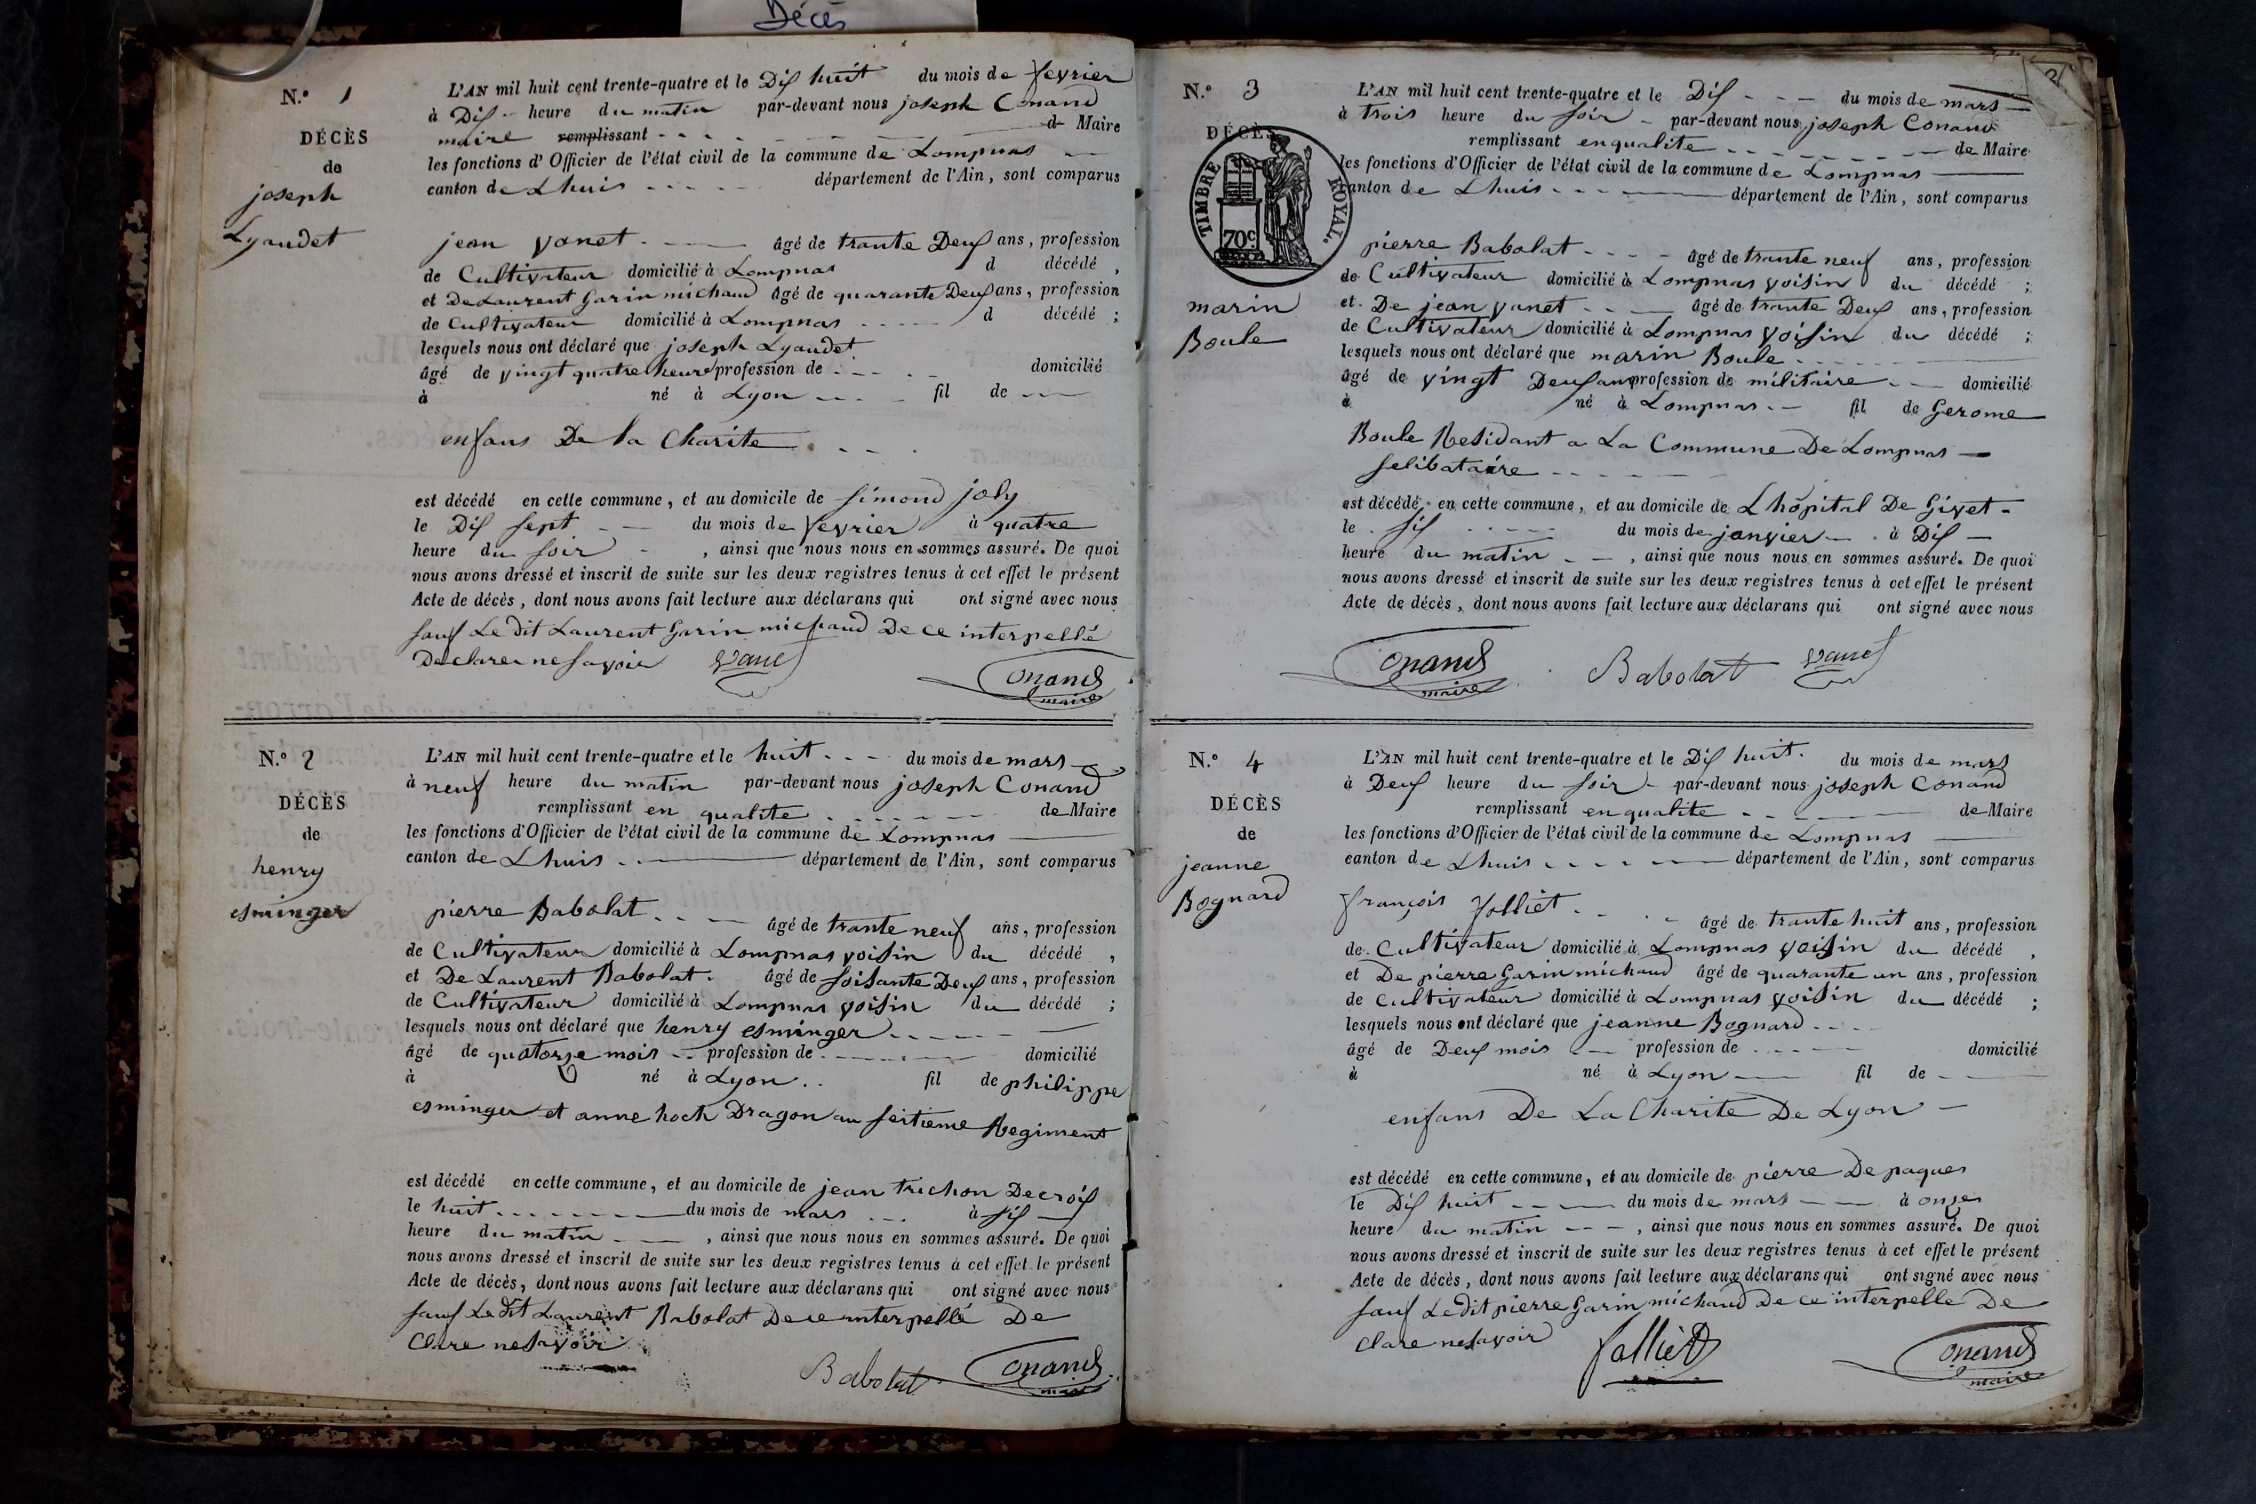 Décès
N.º 1
DÉCÈS
de
joseph
Lyaudet
L'AN mil huit cent trente-quatre et le Dix huit du mois de fevrier
à Dix heure du matin par-devant nous joseph Conand
maire remplissant d Maire
les fonctions d'Officier de l'état civil de la commune de Lompnas
canton de Lhuis département de l'Ain, sont comparus
jean vanet âgé de trante Deux ans, profession
de Cultivateur domicilié à Lompnas d décédé ,
et De Laurent Garin michaud âgé de quarante Deux ans, profession
de Cultivateur domicilié à Lompnas d décédé ;
lesquels nous ont déclaré que joseph Lyaudet
âgé de vingt quatre heure profession de domicilié
à né à Lyon fil de
enfans De la Charite
est décédé en cette commune, et au domicile de simond joly
le Dix sept du mois de fevrier à quatre
heure du soir , ainsi que nous nous en sommes assuré. De quoi
nous avons dressé et inscrit de suite sur les deux registres tenus à cet effet le présent
Acte de décès, dont nous avons fait lecture aux déclarans qui ont signé avec nous
sauf Le dit Laurent Garin michaud De ce interpellé
Declare ne savoir vanet
Conand
maire
N.º 2
DÉCÈS
de
henry
esminger
L'AN mil huit cent trente-quatre et le huit du mois de mars
à neuf heure du matin par-devant nous joseph Conand
remplissant en qualite de Maire
les fonctions d'Officier de l'état civil de la commune de Lompnas
canton de Lhuis département de l'Ain, sont comparus
pierre Babolat âgé de trante neuf ans, profession
de Cultivateur domicilié à Lompnas voisin du décédé ,
et De Laurent Babolat âgé de soisante Deux ans, profession
de Cultivateur domicilié à Lompnas voisin du décédé ;
lesquels nous ont déclaré que henry esminger
âgé de quatorze mois profession de domicilié
à né à Lyon fil de philippe
esminger et anne hoch Dragon au seitieme Regiment
est décédé en cette commune, et au domicile de jean trichon Decroix
le huit du mois de mars à six
heure du matin , ainsi que nous nous en sommes assuré. De quoi
nous avons dressé et inscrit de suite sur les deux registres tenus à cet effet le présent
Acte de décès, dont nous avons fait lecture aux déclarans qui ont signé avec nous
sauf Le dit Laurent Babolat De ce interpellé De
Clare ne savoir
Babolat Conand
maire
N.º 3
DÉCÈS
TIMBRE ROYAL.
70c
marin
Boule
L'AN mil huit cent trente-quatre et le Dix du mois de mars
à trois heure du soir par-devant nous joseph Conand
remplissant en qualite de Maire
les fonctions d'Officier de l'état civil de la commune de Lompnas
canton de Lhuis département de l'Ain, sont comparus
pierre Babolat âgé de trante neuf ans, profession
de Cultivateur domicilié à Lompnas voisin du décédé ;
et De jean vanet âgé de trante Deux ans, profession
de Cultivateur domicilié à Lompnas voisin du décédé ;
lesquels nous ont déclaré que marin Boule
âgé de vingt Deux ans profession de militaire domicilié
à né à Lompnas fil de Gerome
Boule Residant a La Commune De Lompnas
selibataire
est décédé en cette commune, et au domicile de Lhôpital De Givet
le six du mois de janvier à Dix
heure du matin , ainsi que nous nous en sommes assuré. De quoi
nous avons dressé et inscrit de suite sur les deux registres tenus à cet effet le présent
Acte de décès, dont nous avons fait lecture aux déclarans qui ont signé avec nous
Conand Babolat vanet
maire
N.º 4
DÉCÈS
de
jeanne
Bognard
L'AN mil huit cent trente-quatre et le Dix huit du mois de mars
à Deux heure du soir par-devant nous joseph Conand
remplissant en qualite de Maire
les fonctions d'Officier de l'état civil de la commune de Lompnas
canton de Lhuis département de l'Ain, sont comparus
françois Jolliet âgé de trante huit ans, profession
de Cultivateur domicilié à Lompnas voisin du décédé ,
et De pierre Garin michaud âgé de quarante un ans, profession
de Cultivateur domicilié à Lompnas voisin du décédé ;
lesquels nous ont déclaré que jeanne Bognard
âgé de Deux mois profession de domicilié
à né à Lyon fil de
enfans De La Charite De Lyon
est décédé en cette commune, et au domicile de pierre De paques
le Dix huit du mois de mars à onze
heure du matin , ainsi que nous nous en sommes assuré. De quoi
nous avons dressé et inscrit de suite sur les deux registres tenus à cet effet le présent
Acte de décès, dont nous avons fait lecture aux déclarans qui ont signé avec nous
sauf Le dit pierre Garin michaud De ce interpelle De
Clare ne savoir Jolliet Conand
maire